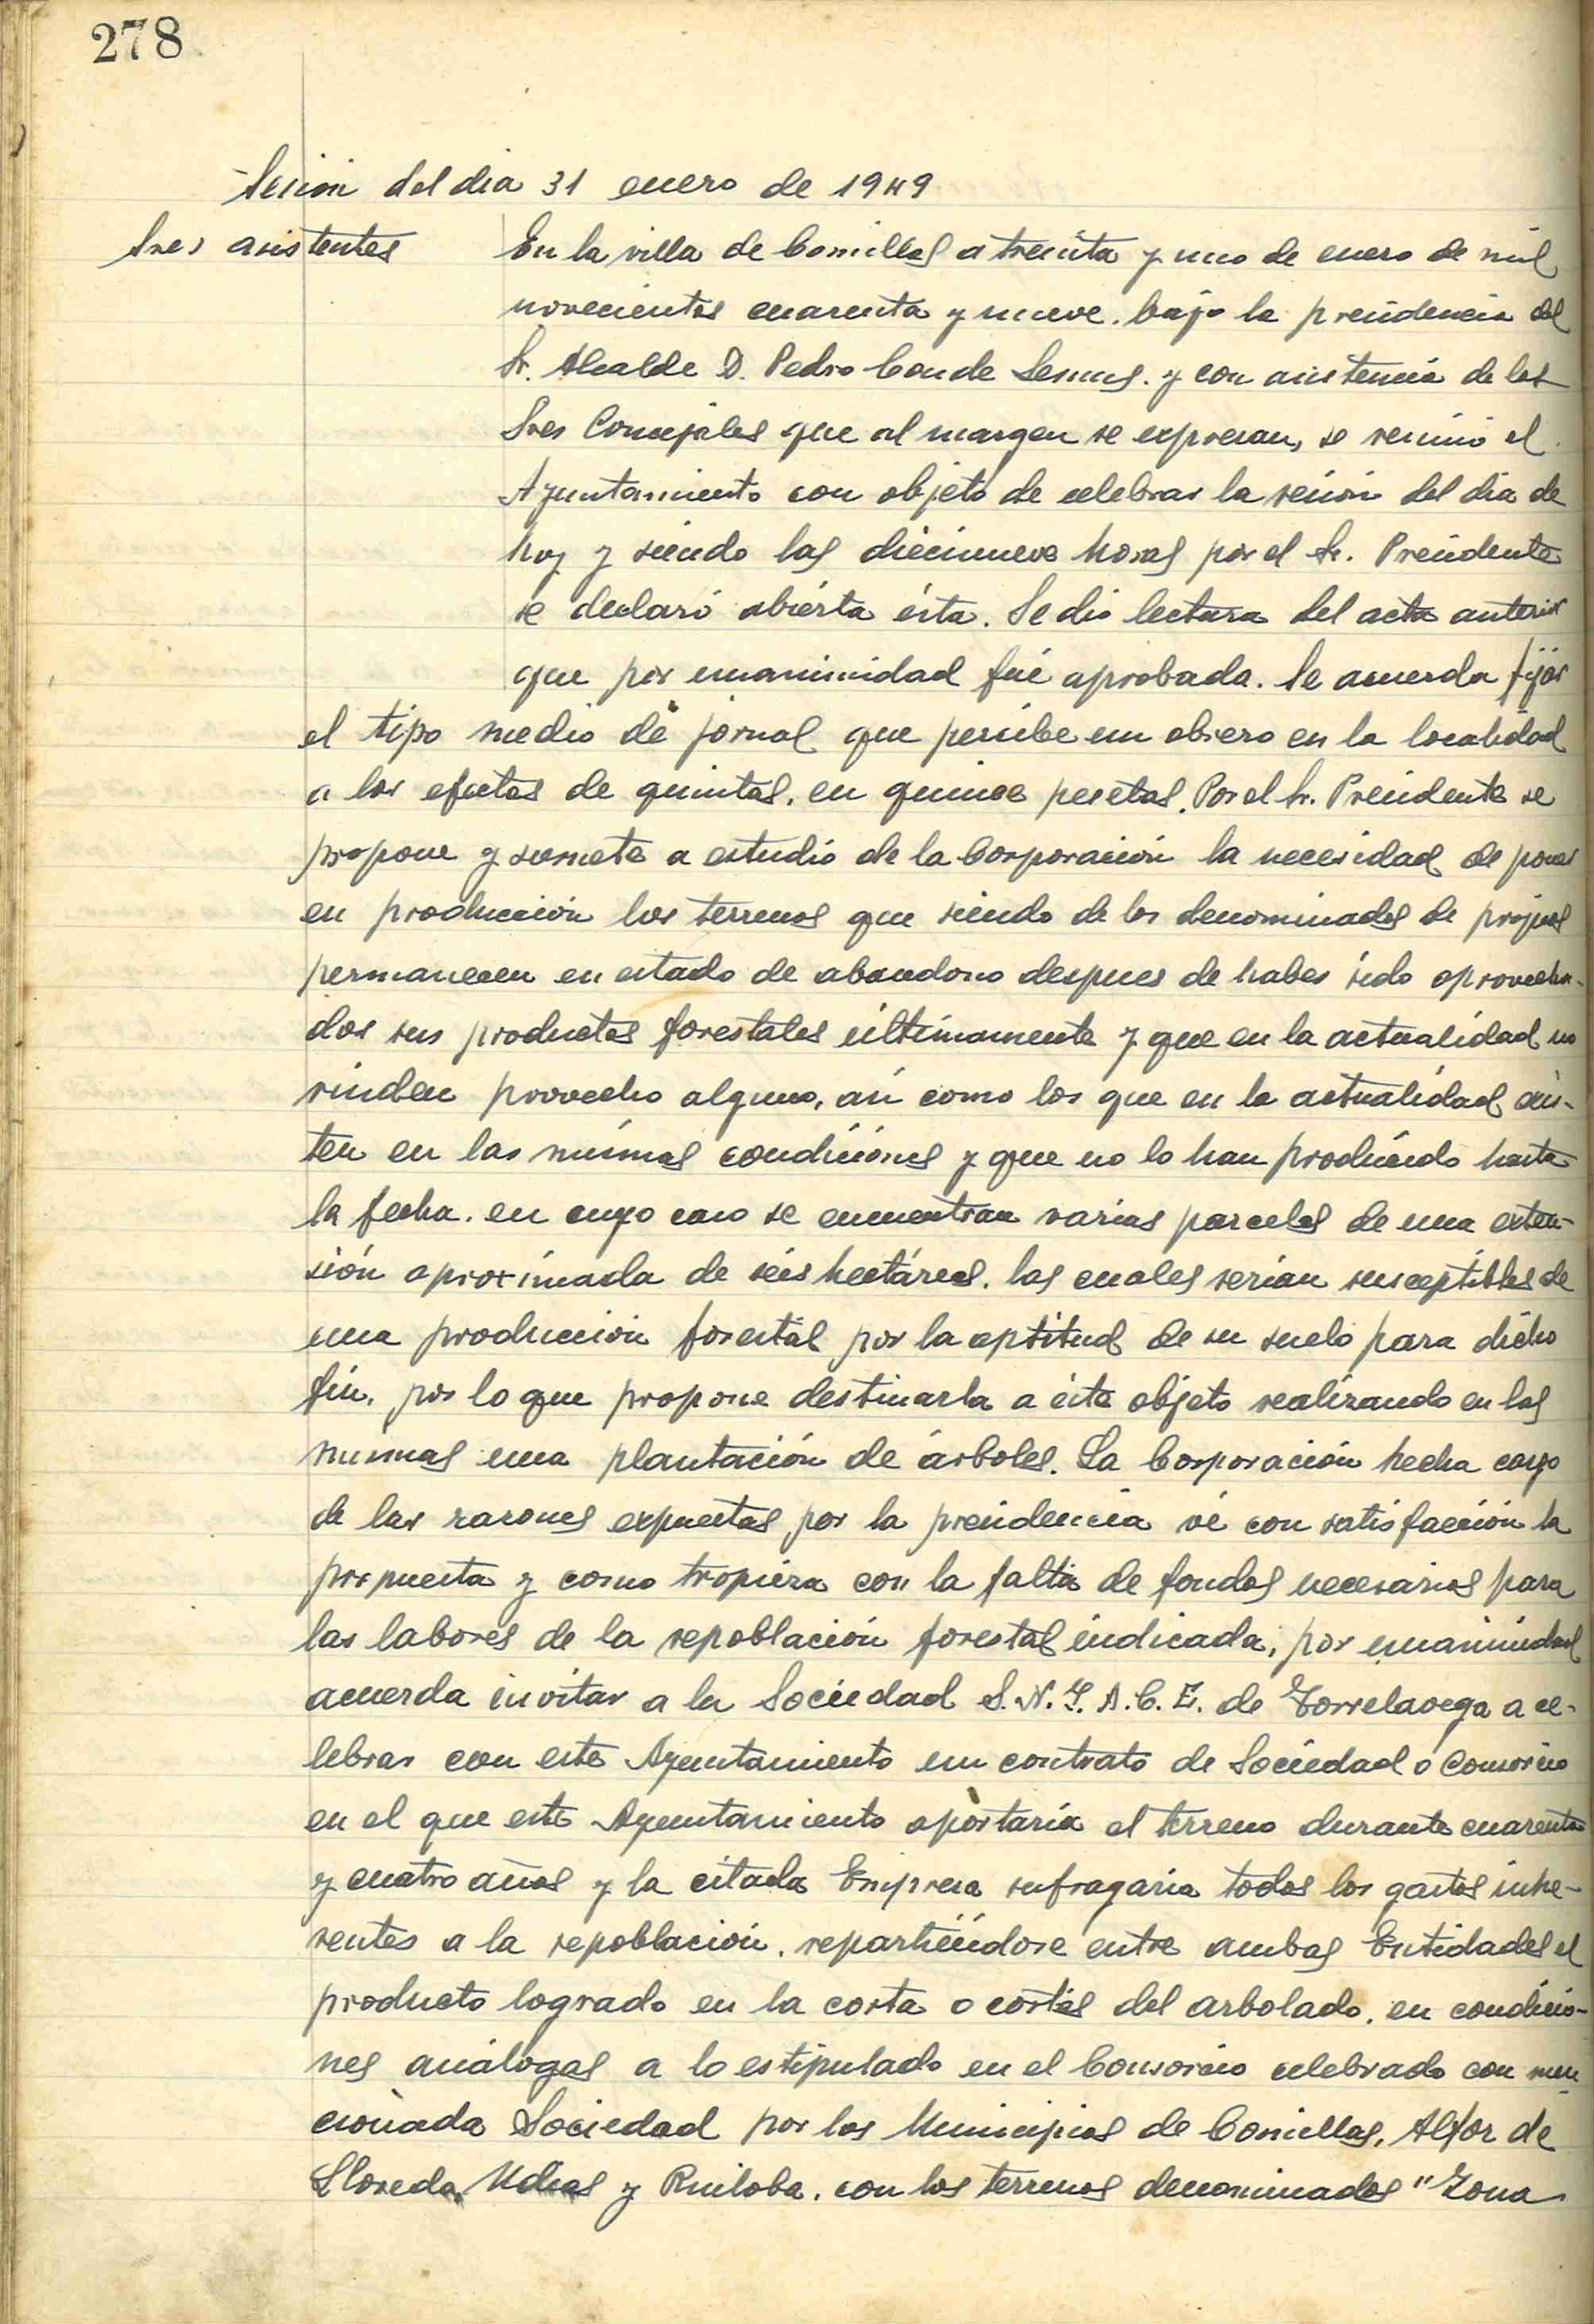 278
Sesión del dia 31 enero de 1949
Sres asistentes
En la villa de Comillas a treinta y uno de enero de mil
novecientos cuarenta y nueve. bajo la presidencia del
Sr. Alcalde D. Pedro Conde y con asistencia de los
Sres Concejales que al margen se expresan, se reunió el
Ayuntamiento con objeto de celebrar la sesión del dia de
hoy y siendo las diecinueve horas por el Sr. Presidente
se declaró abierta ésta. Se dio lectura del acta anterior
que por unanimidad fué aprobada. Se acuerda fijar
el tipo medio de jornal que percibe un obrero en la localidad
a los efectos de quintas, en quince pesetas. Por el Sr. Presidente se
propone y somete a estudio de la Corporación la necesidad de poner
en producción los terrenos que siendo de los denominados de propios
permanecen en estado de abandono despues de haber sido aprovecha-
dos sus productos forestales últimamente y que en la actualidad no
rinden provecho alguno, así como los que en la actualidad exis-
ten en las mismas condiciones y que no lo han producido hasta
la fecha. en cuyo caso se encuentran varias parcelas de una exten-
sión aproximada de seis hectáreas. las cuales serian susceptibles de
una producción forestal por la aptitud de su suelo para dicho
fin, por lo que propone destinarla a éste objeto realizando en las
mismas una plantación de árboles. La Corporación hecha cargo
de las razones expuestas por la presidencia vé con satisfacción la
propuesta y como tropieza con la falta de fondos necesarios para
las labores de la repoblación forestal indicada, por unanimidad
acuerda invitar a la Sociedad S.N.I.A.C.E. de Torrelavega a ce-
lebrar con este Ayuntamiento un contrato de Sociedad o Consorcio
en el que este Ayuntamiento aportaria el terreno durante cuarenta
y cuatro años y la citada Empresa sufragaria todos los gastos inhe-
rentes a la repoblación. repartiéndose entre ambas Entidades el
producto logrado en la corta o cortas del arbolado. en condicio-
nes análogas a lo estipulado en el Consorcio celebrado con men
cionada Sociedad por los Municipios de Comillas, Alfoz de
Lloredo, Udias y Ruiloba. con los terrenos denominados "Zona